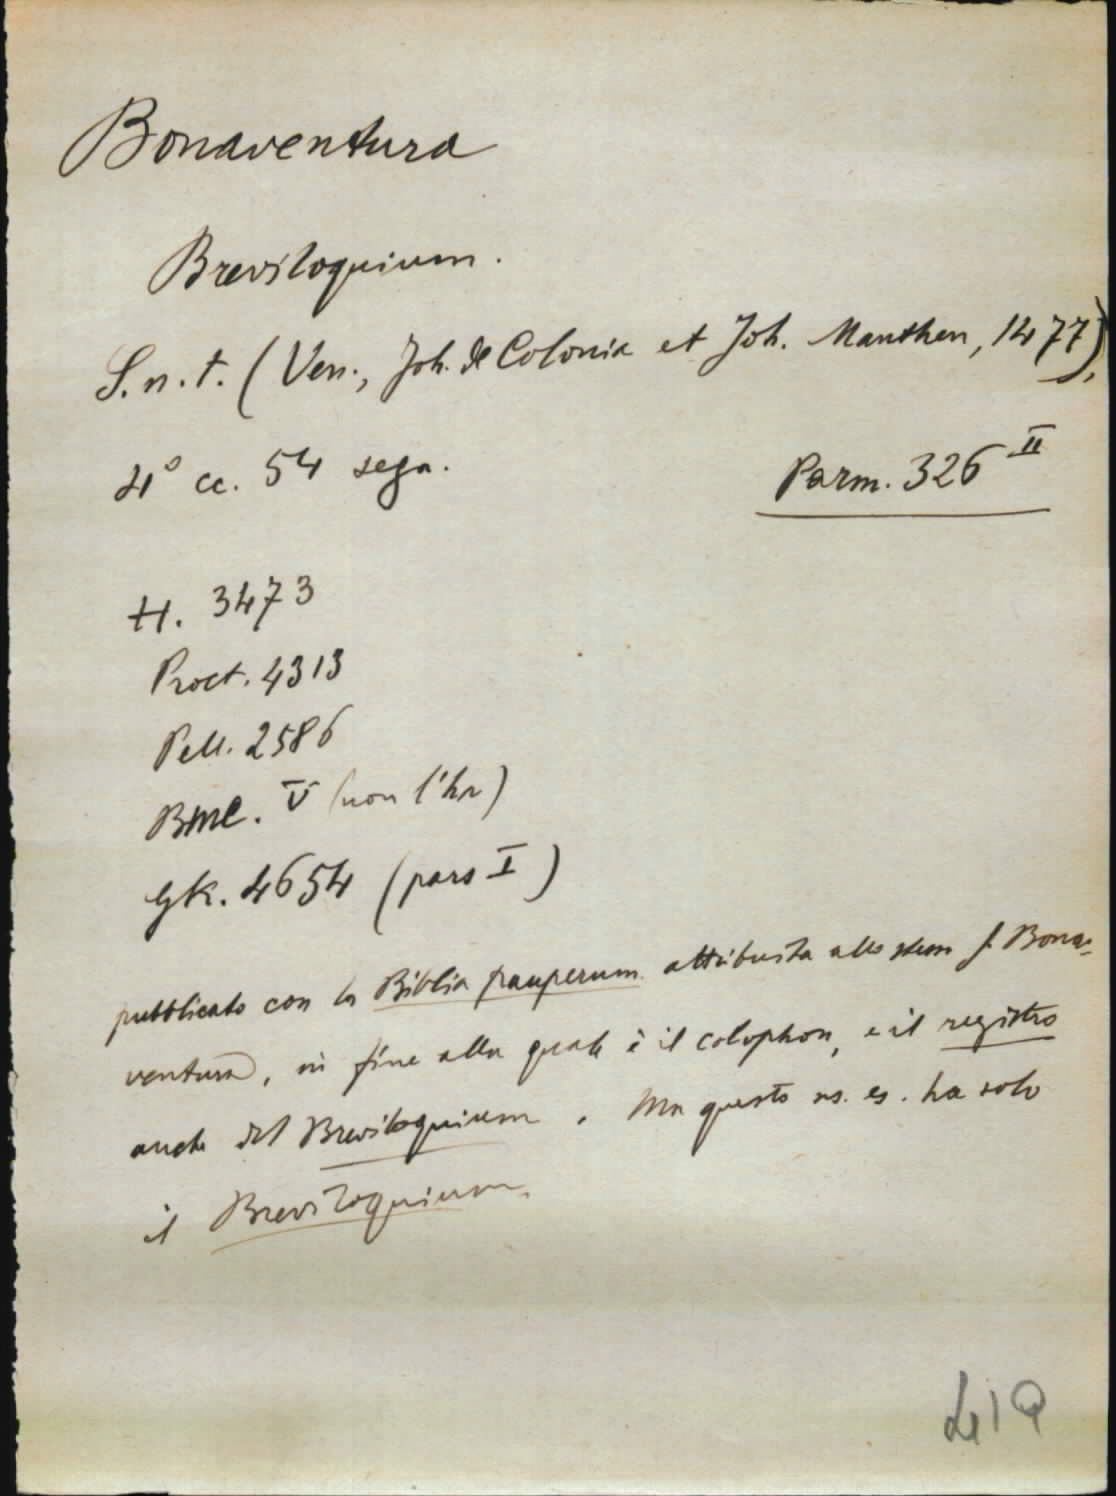 Bonaventura
Breviloquium.
S.n.t. (Ven., Joh. de Colonia et Joh. Manthen, 1477),
4° cc. 54 segn.
Parm. 326 II
H. 3473
Proct. 4313
Pell. 2586
BMC. V (non l'ha)
GK. 4654 (pars I)
pubblicato con la Biblia pauperum attribuita allo stesso S. Bona-
ventura, in fine alla quale è il colophon, e il registro
anche del Breviloquium. Ma questo ns. es. ha solo
il Breviloquium.